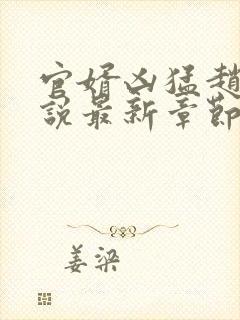 官婿凶猛趙
說最新章節
姜梁